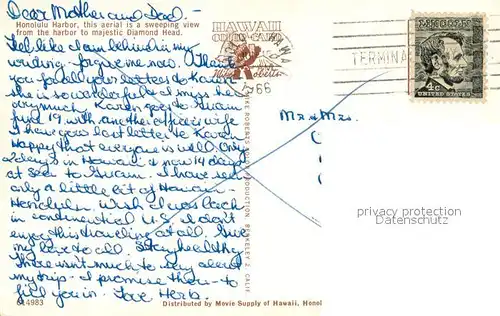 Dear Mother and Dad,-
Honolulu Harbor, this aerial is a sweeping view
from the harbor to majestic Diamond Head.
I feel like I am behind in my
writing - forgive me now. Thank
you for all your letters to Karen
she is so wonderful & I miss her
very much. Karen goes to Guam
June 19 with another officer's wife
I have your last letter to Karen
Happy that everyone is well. Only
2 days in Hawaii & now 14 days
at sea to Guam. I have seen
only a little bit of Hawaii-
Honolulu. Wish I was back
in continental U.S. I don't
enjoy this traveling at all. Give
my love to all. Stay healthy
There isn't much to say about
my trip. I promise them - to
fill you in. Love Herb.
614983
Distributed by Movie Supply of Hawaii, Honol
HAWAII
Mike Roberts
MIKE ROBERTS COLOR PRODUCTION BERKELEY 2, CALIF
HAWA
1966
TERMINA
LINCOLN
4¢
UNITED STATES
Mr & Mrs.
privacy protected